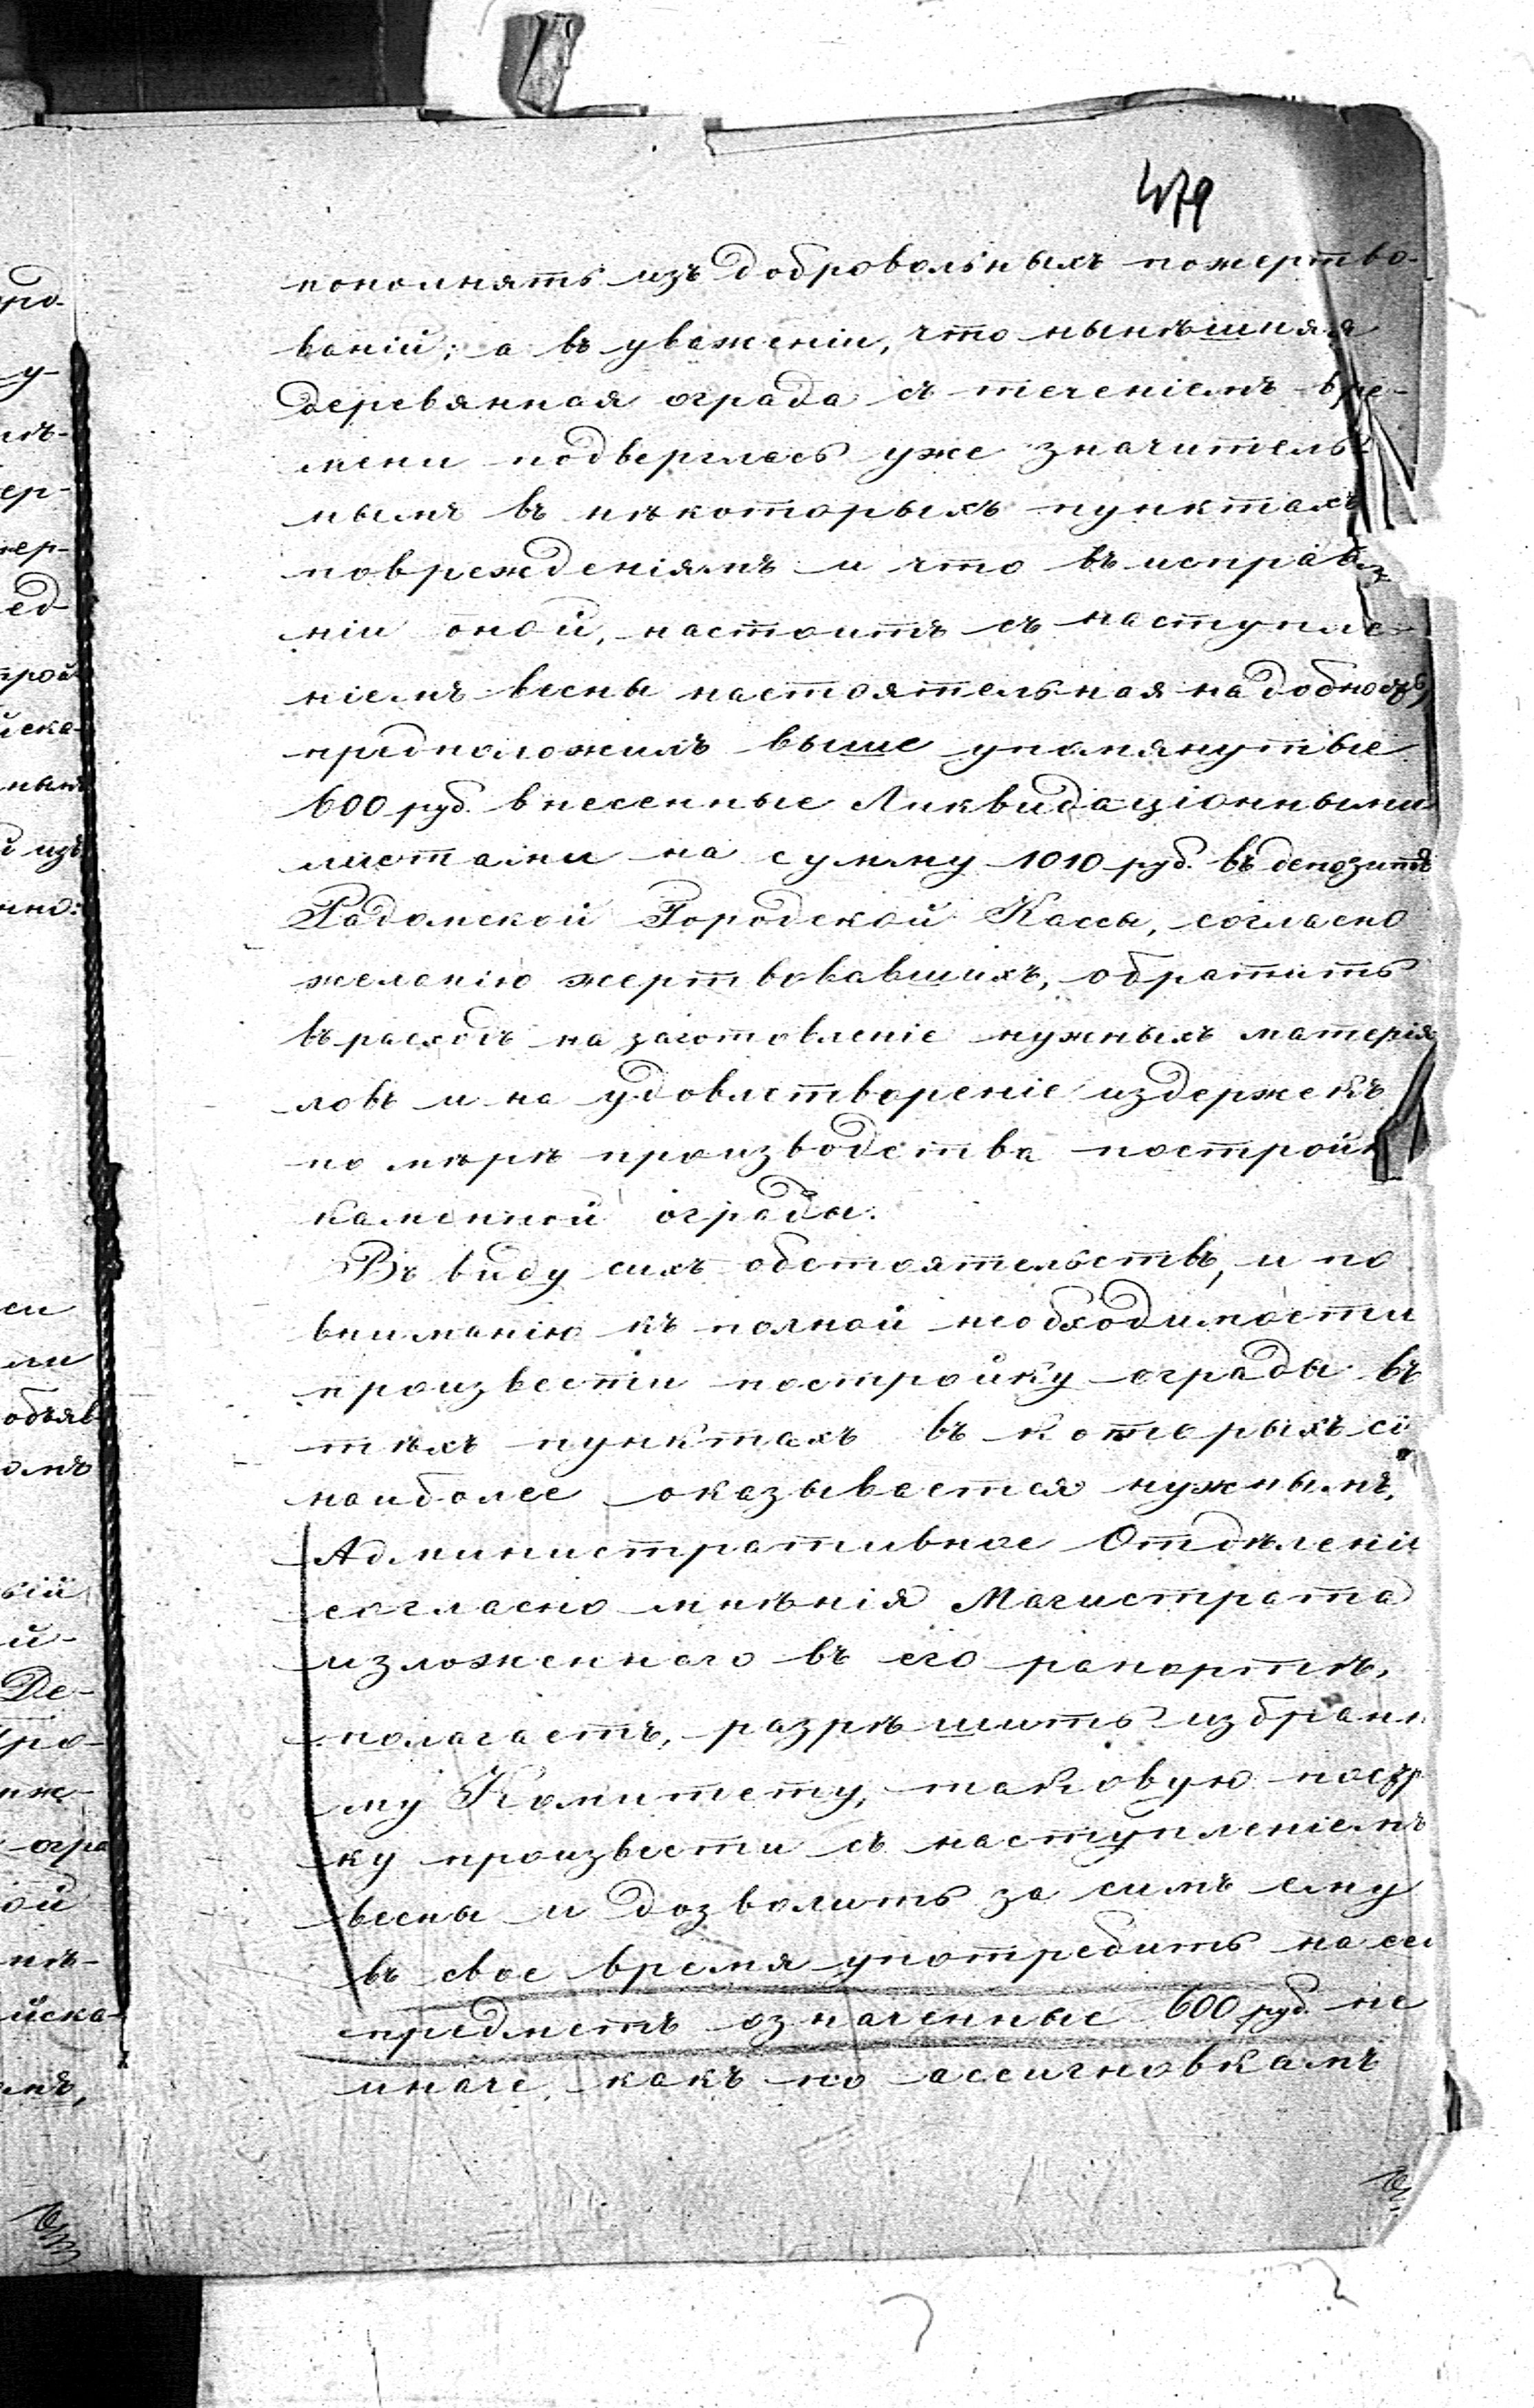 479
пополнять изъ добровольныхъ пожертво-
ваній; а въ уваженіи, что нынѣшняя
деревянная ограда съ теченіемъ вре-
мени подверглась уже значитель-
нымъ въ нѣкоторыхъ пунктахъ
поврежденіямъ и что въ исправле-
ніи оной, настоитъ съ наступле-
ніемъ весны настоятельная надобность,
предположилъ выше упомянутые
600 руб. внесенные Ликвидаціонными
листами на сумму 1010 руб. въ депозитъ
Радомской Городской Кассы, согласно
желанію жертвовавшихъ, обратить
въ расходъ на заготовленіе нужныхъ матерія
ловъ и на удовлетвореніе издержекъ
по мѣрѣ производства постройки
каменной ограды.
Въ виду сихъ обстоятельствъ, и по
вниманію къ полной необходимости
произвести постройку ограды въ
тѣхъ пунктахъ въ которыхъ сі
наиболее оказывается нужнымъ,
Административное Отдѣленіе
согласно мнѣнія Магистрата
изложеннаго въ его рапортѣ,
полагаетъ, разрѣшить избранн
му Комитету, таковую постр
ку произвести съ наступленіемъ
весны и дозволить за симъ ему
въ свое время употребить на сей
предметъ означенные 600 руб. не
иначе, какъ по ассигновкамъ
ро-
у-
мъ-
ер-
ед-
трой
иска-
изъ
си
ли
объяв
омъ
и-
Де-
про-
огра
ой
нѣ-
иска-